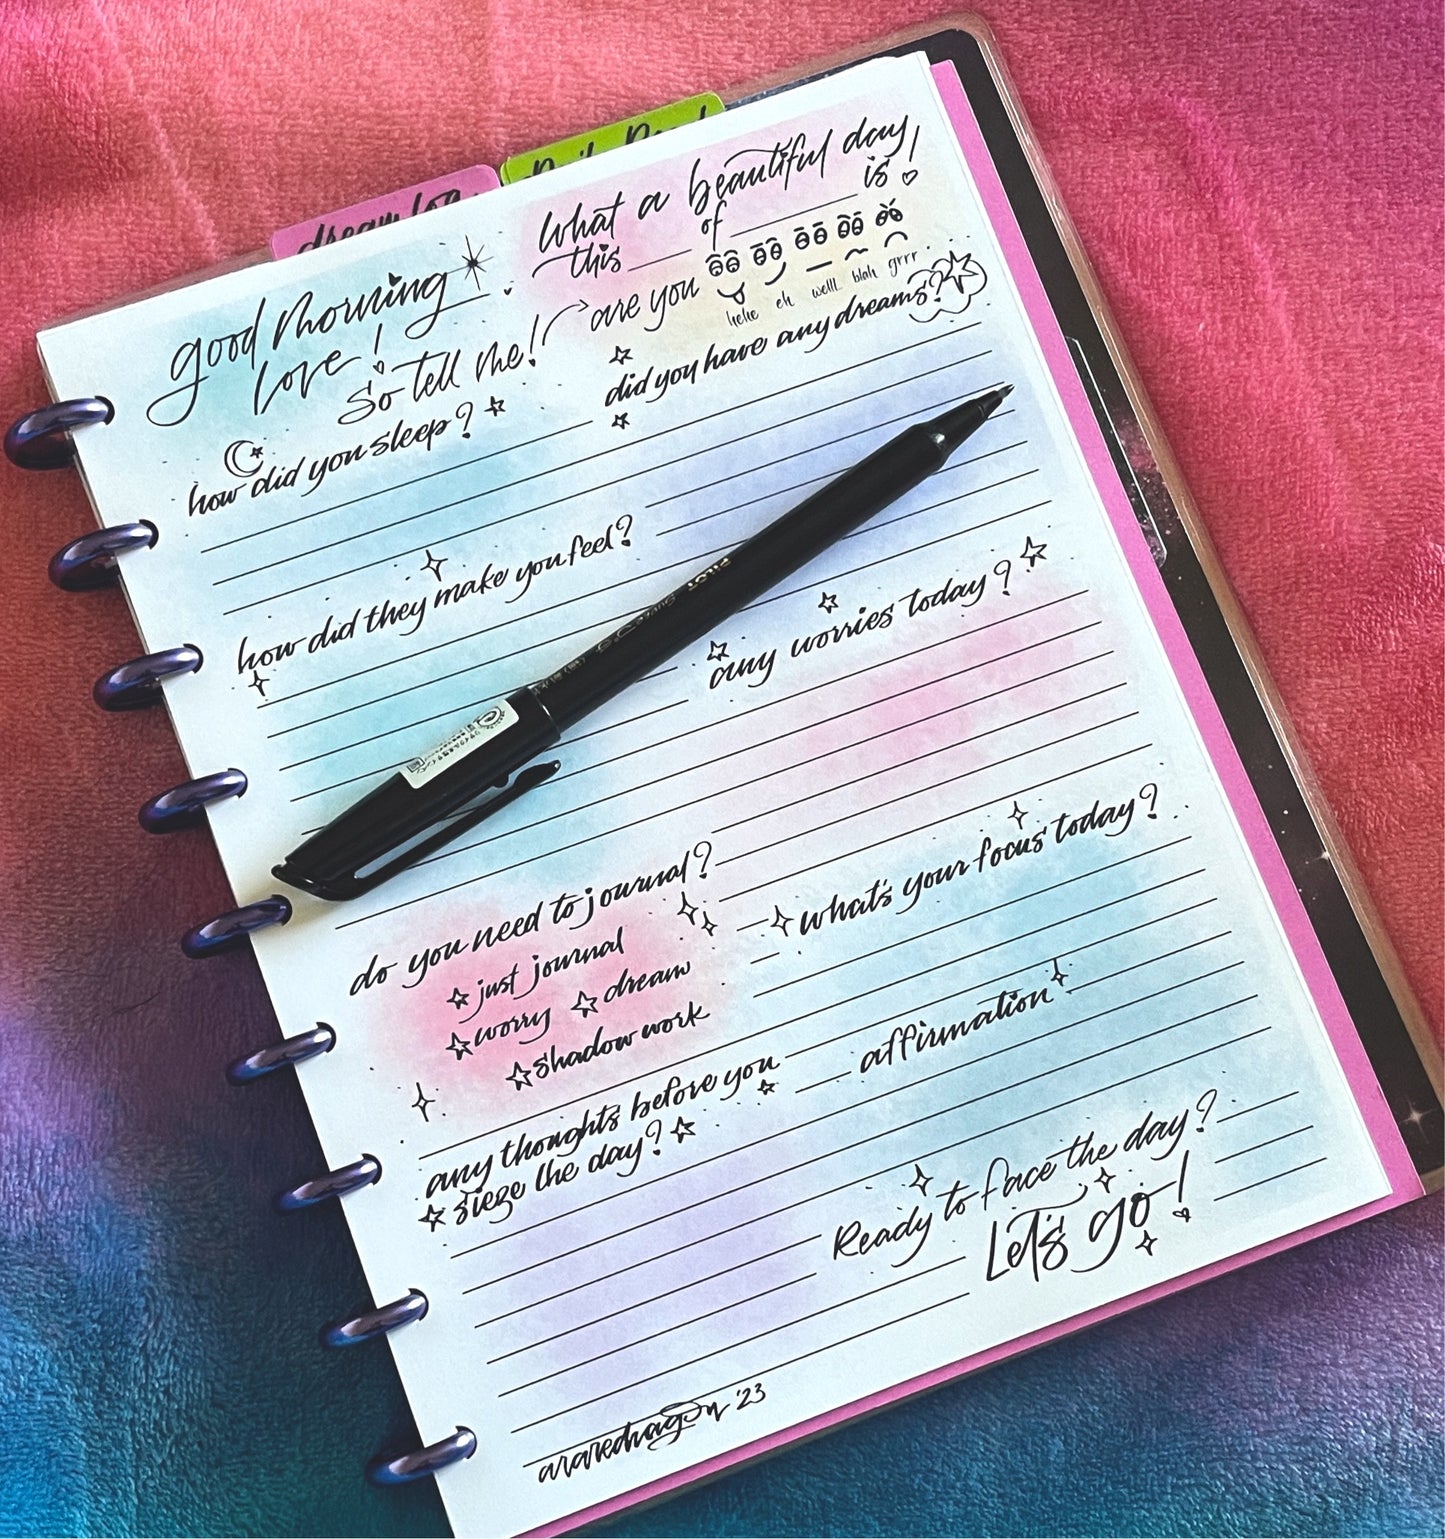 dream log
good morning
love!
What a beautiful day,
this ____ of ________ is!
So tell me!
are you
hehe eh welll blah grrr
how did you sleep?
did you have any dreams?
how did they make you feel?
any worries today?
PILOT
do you need to journal?
just journal
worry dream
shadow work
what's your focus today?
affirmation
any thoughts before you
sieze the day?
Ready to face the day?
Let's go!
'23